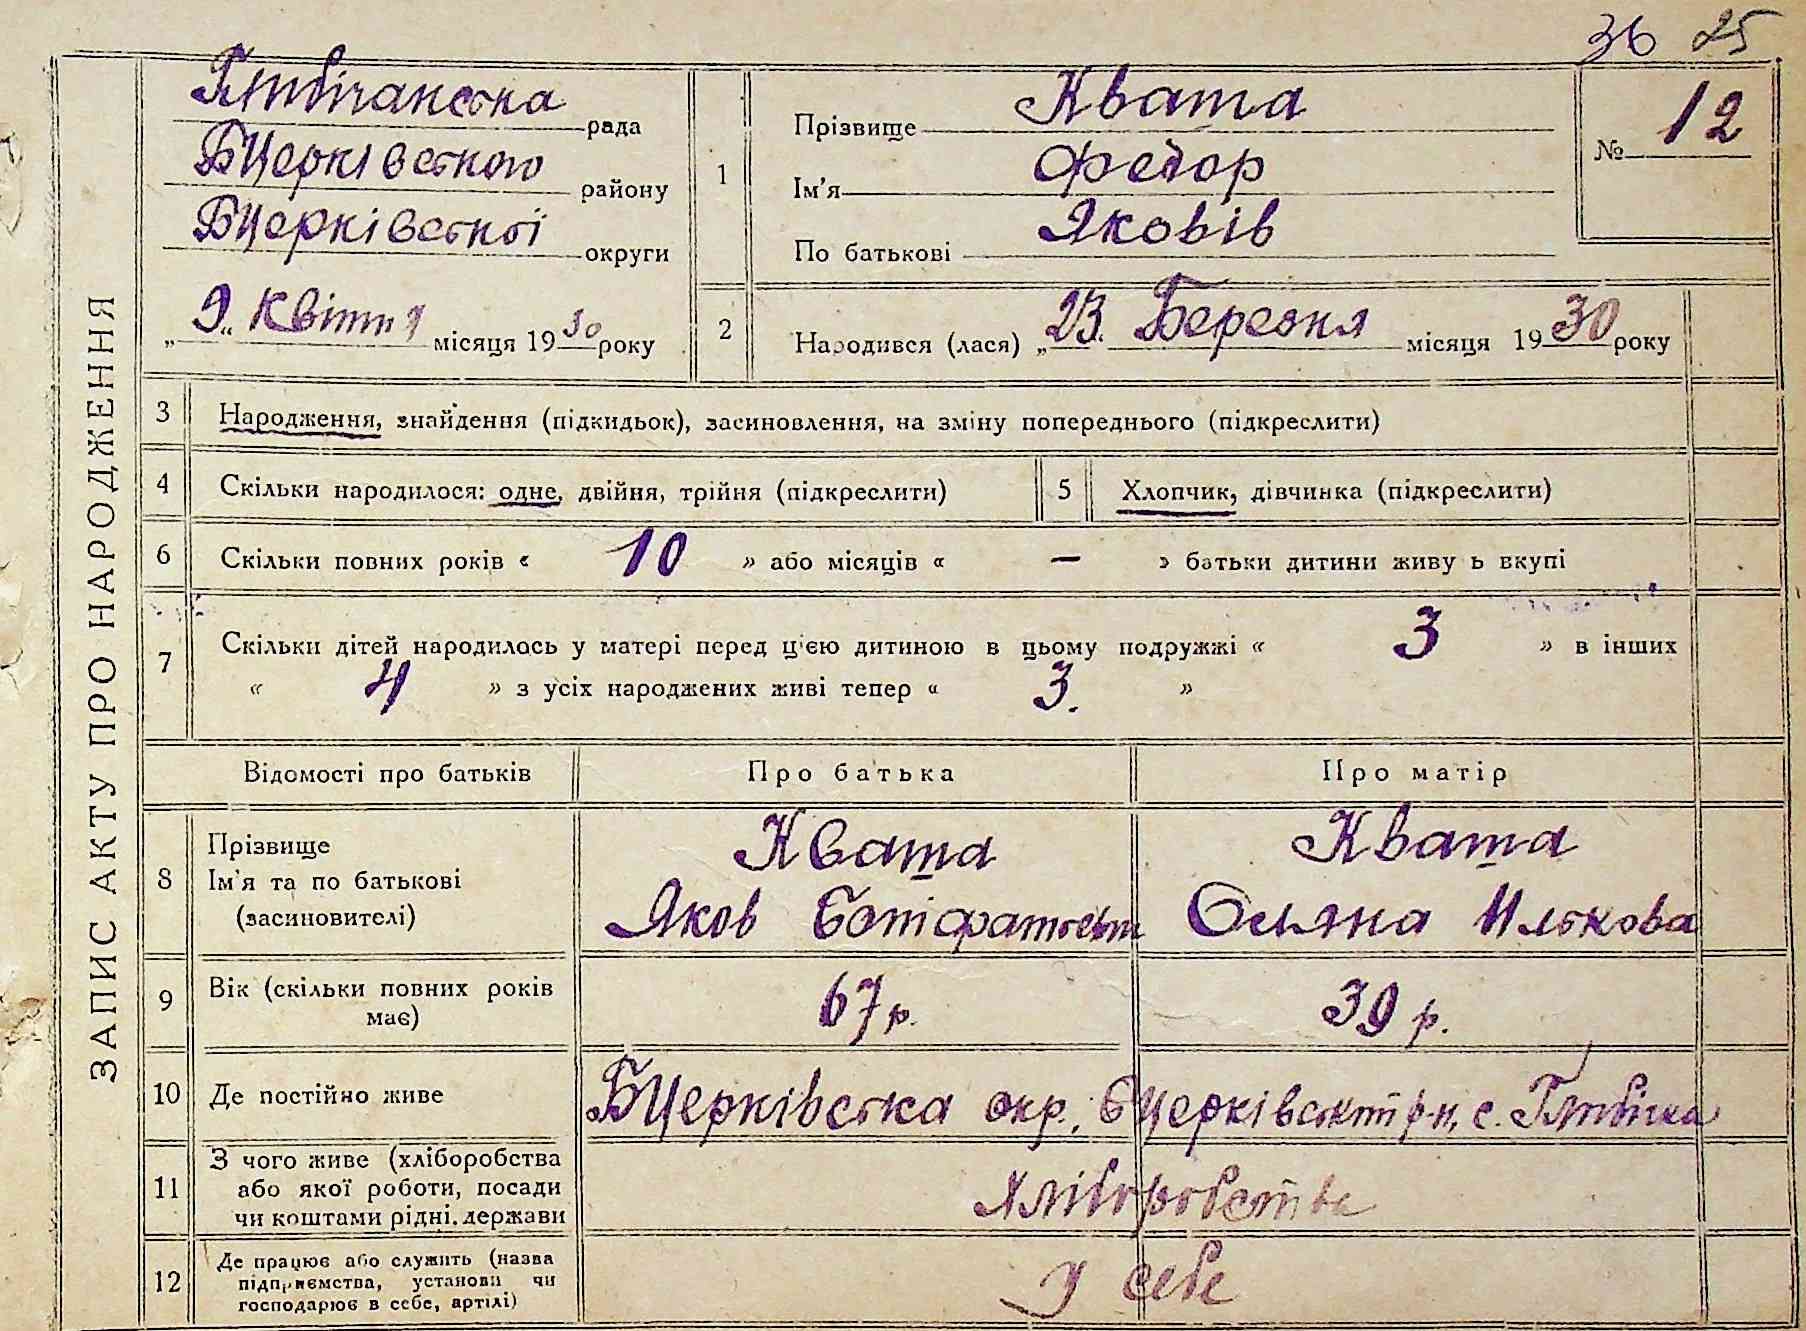 36 25
Глибічанська рада
БЦерківського району
БЦерківської округи
„9“ Квітня місяця 1930 року
1
Прізвище Кваша
Ім'я Федор
По батькові Яковів
№ 12
2
Народився (лася) „23. Березня місяця 1930 року
ЗАПИС АКТУ ПРО НАРОДЖЕННЯ
3 Народження, знайдення (підкидьок), засиновлення, на зміну попереднього (підкреслити)
4 Скільки народилося: одне, двійня, трійня (підкреслити)
5 Хлопчик, дівчинка (підкреслити)
6 Скільки повних років « 10 » або місяців « — » батьки дитини живу ь вкупі
7 Скільки дітей народилось у матері перед ц'єю дитиною в цьому подружжі « 3 » в інших
« 4 » з усіх народжених живі тепер « 3. »
Відомості про батьків Про батька Про матір
8 Прізвище
Ім'я та по батькові
(засиновителі)
Кваша
Яков
Кваша
Ольяна Илькова
9 Вік (скільки повних років
має)
67 р. 39 р.
10 Де постійно живе БЦерківська окр., БЦерківський р-н, с. Глибічка
11 З чого живе (хліборобства
або якої роботи, посади
чи коштами рідні. держави
Хліборобства
12 Де працює або служить (назва
підприємства, установи чи
господарює в себе, артілі)
у себе